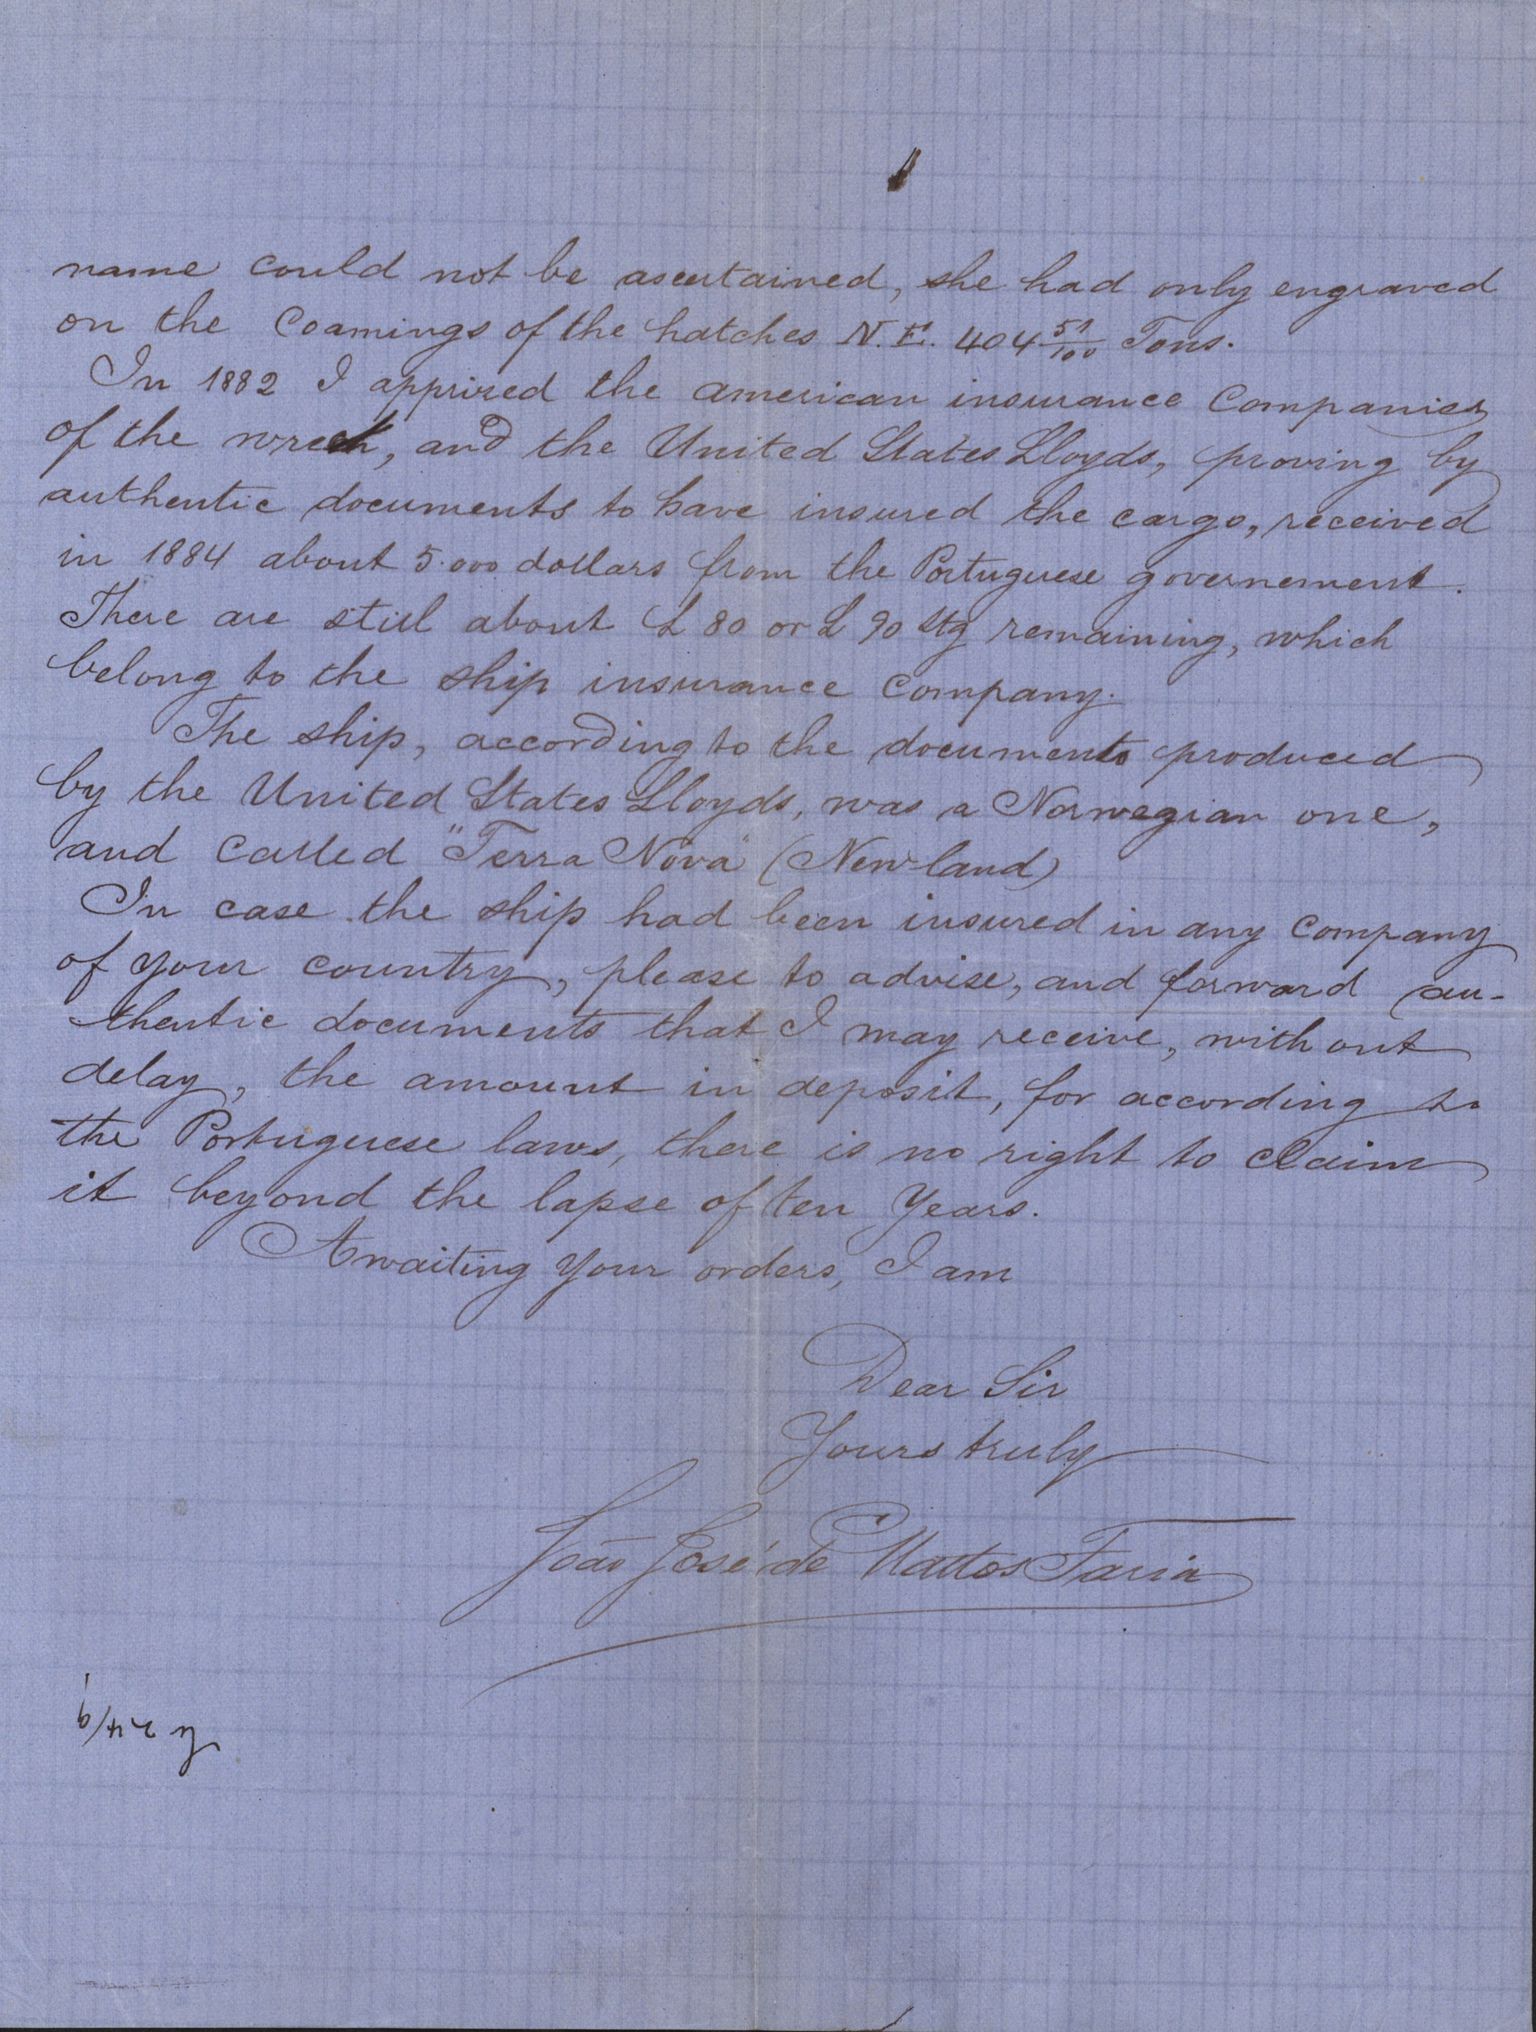 name could not be ascertained, she had only engraved
on the Coamings of the hatches N. E. 404 51/100 Tons.
In 1882 I apprized the american insurance Companies
of the wreck, and the United States Lloyds, proving by
authentic documents to have insured the cargo, received
in 1884 about 5.000 dollars from the Portuguese governement.
There are still about £ 80 or £ 90 Stg remaining, which
belong to the ship insurance Company.
The ship, according to the documents produced
by the United States Lloyds, was a Norwegian one,
and Called "Terra Nova" (New-land)
In case the ship had been insured in any Company
of your country, please to advise, and forward au-
thentic documents that I may receive, without
delay, the amount in deposit, for according to
the Portuguese laws, there is no right to claim
it beyond the lapse of ten Years.
Awaiting your orders, I am
Dear Sir
Yours truly
João José de Mattos Faria
24/9